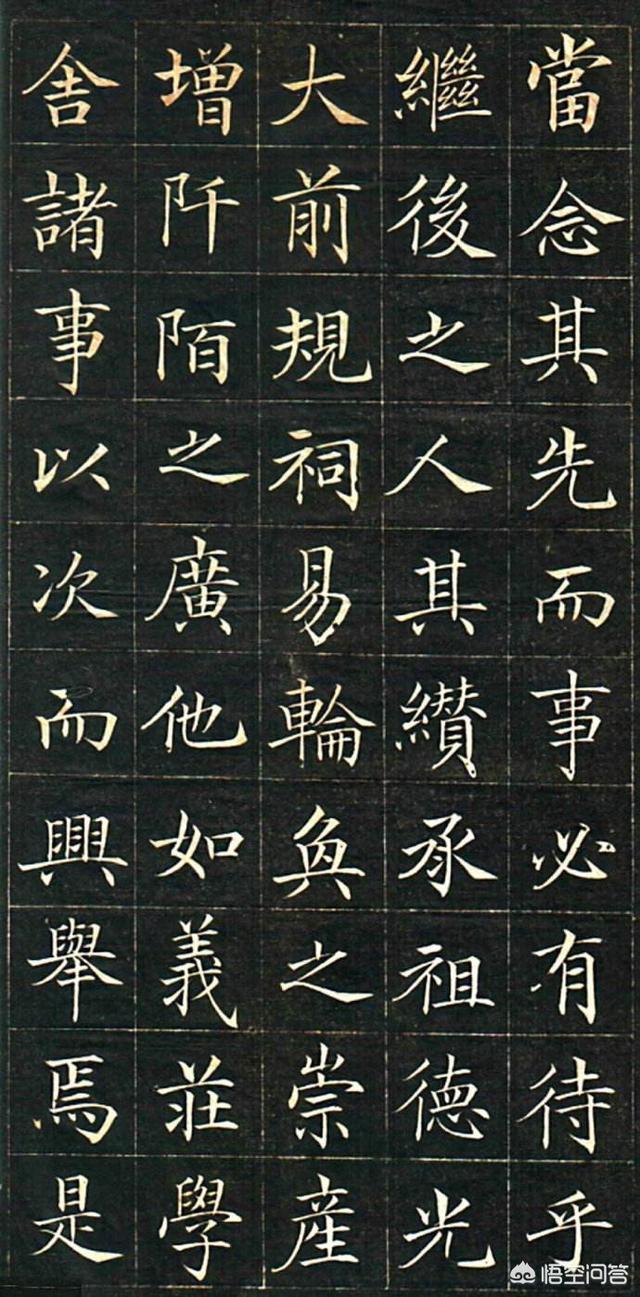 當念其先而事必有待乎
繼後之人其纘承祖德光
大前規祠易輪奐之崇產
增阡陌之廣他如義莊學
舍諸事以次而興舉焉是
悟空问答